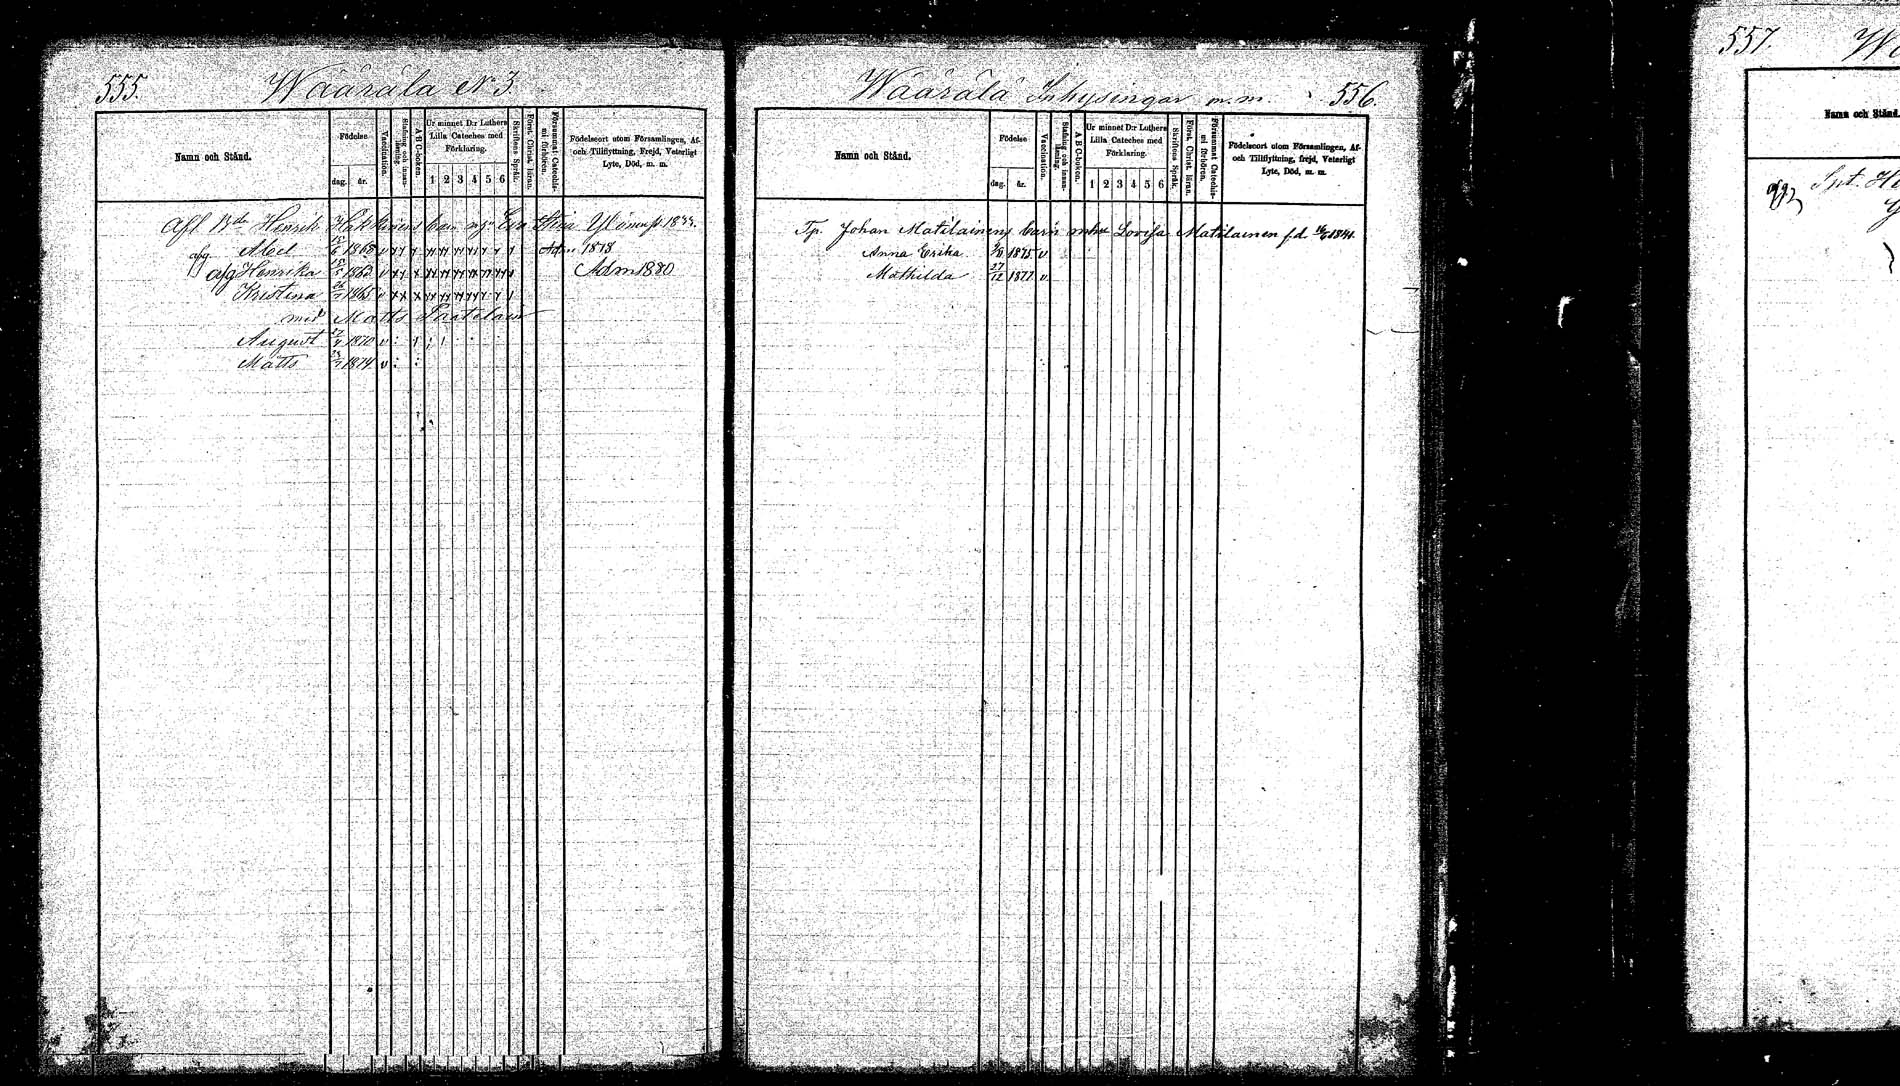 555. Wäärälä N:o 3.
Namn och Stånd.
Födelse
dag. år.
Vaccination.
Stafning och innanläsning.
A B C-boken.
Ur minnet D:r Luthers Lilla Cateches med Förklaring.
1 2 3 4 5 6
Skriftens Språk.
Först. Christ. läran.
Försummat Catechismi förhören.
Födelseort utom Församlingen, Af- och Tillflyttning, Frejd, Veterligt Lyte, Död, m. m.
Afl Bde Henrik Hakkinens barn Eva Stina 1833.
afg. Abel 1868 1878
afg Henrika 1863 Adm 1880
Kristina 1865
med Matts
August 1870 v
Matts 1874 v
Wäärälä Inhysingar m.m. 556.
Namn och Stånd.
Födelse
dag. år.
Vaccination.
Stafning och innanläsning.
A B C-boken.
Ur minnet D:r Luthers Lilla Cateches med Förklaring.
1 2 3 4 5 6
Skriftens Språk.
Först. Christ. läran.
Försummat Catechismi förhören.
Födelseort utom Församlingen, Af- och Tillflyttning, frejd, Veterligt Lyte, Död, m. m.
Tp. Johan Matilainens barn Lovisa Matilainen f.d. 1841.
Anna Erika 1875 v
Mathilda 27/12 1877 v
557.
Namn och Stånd.